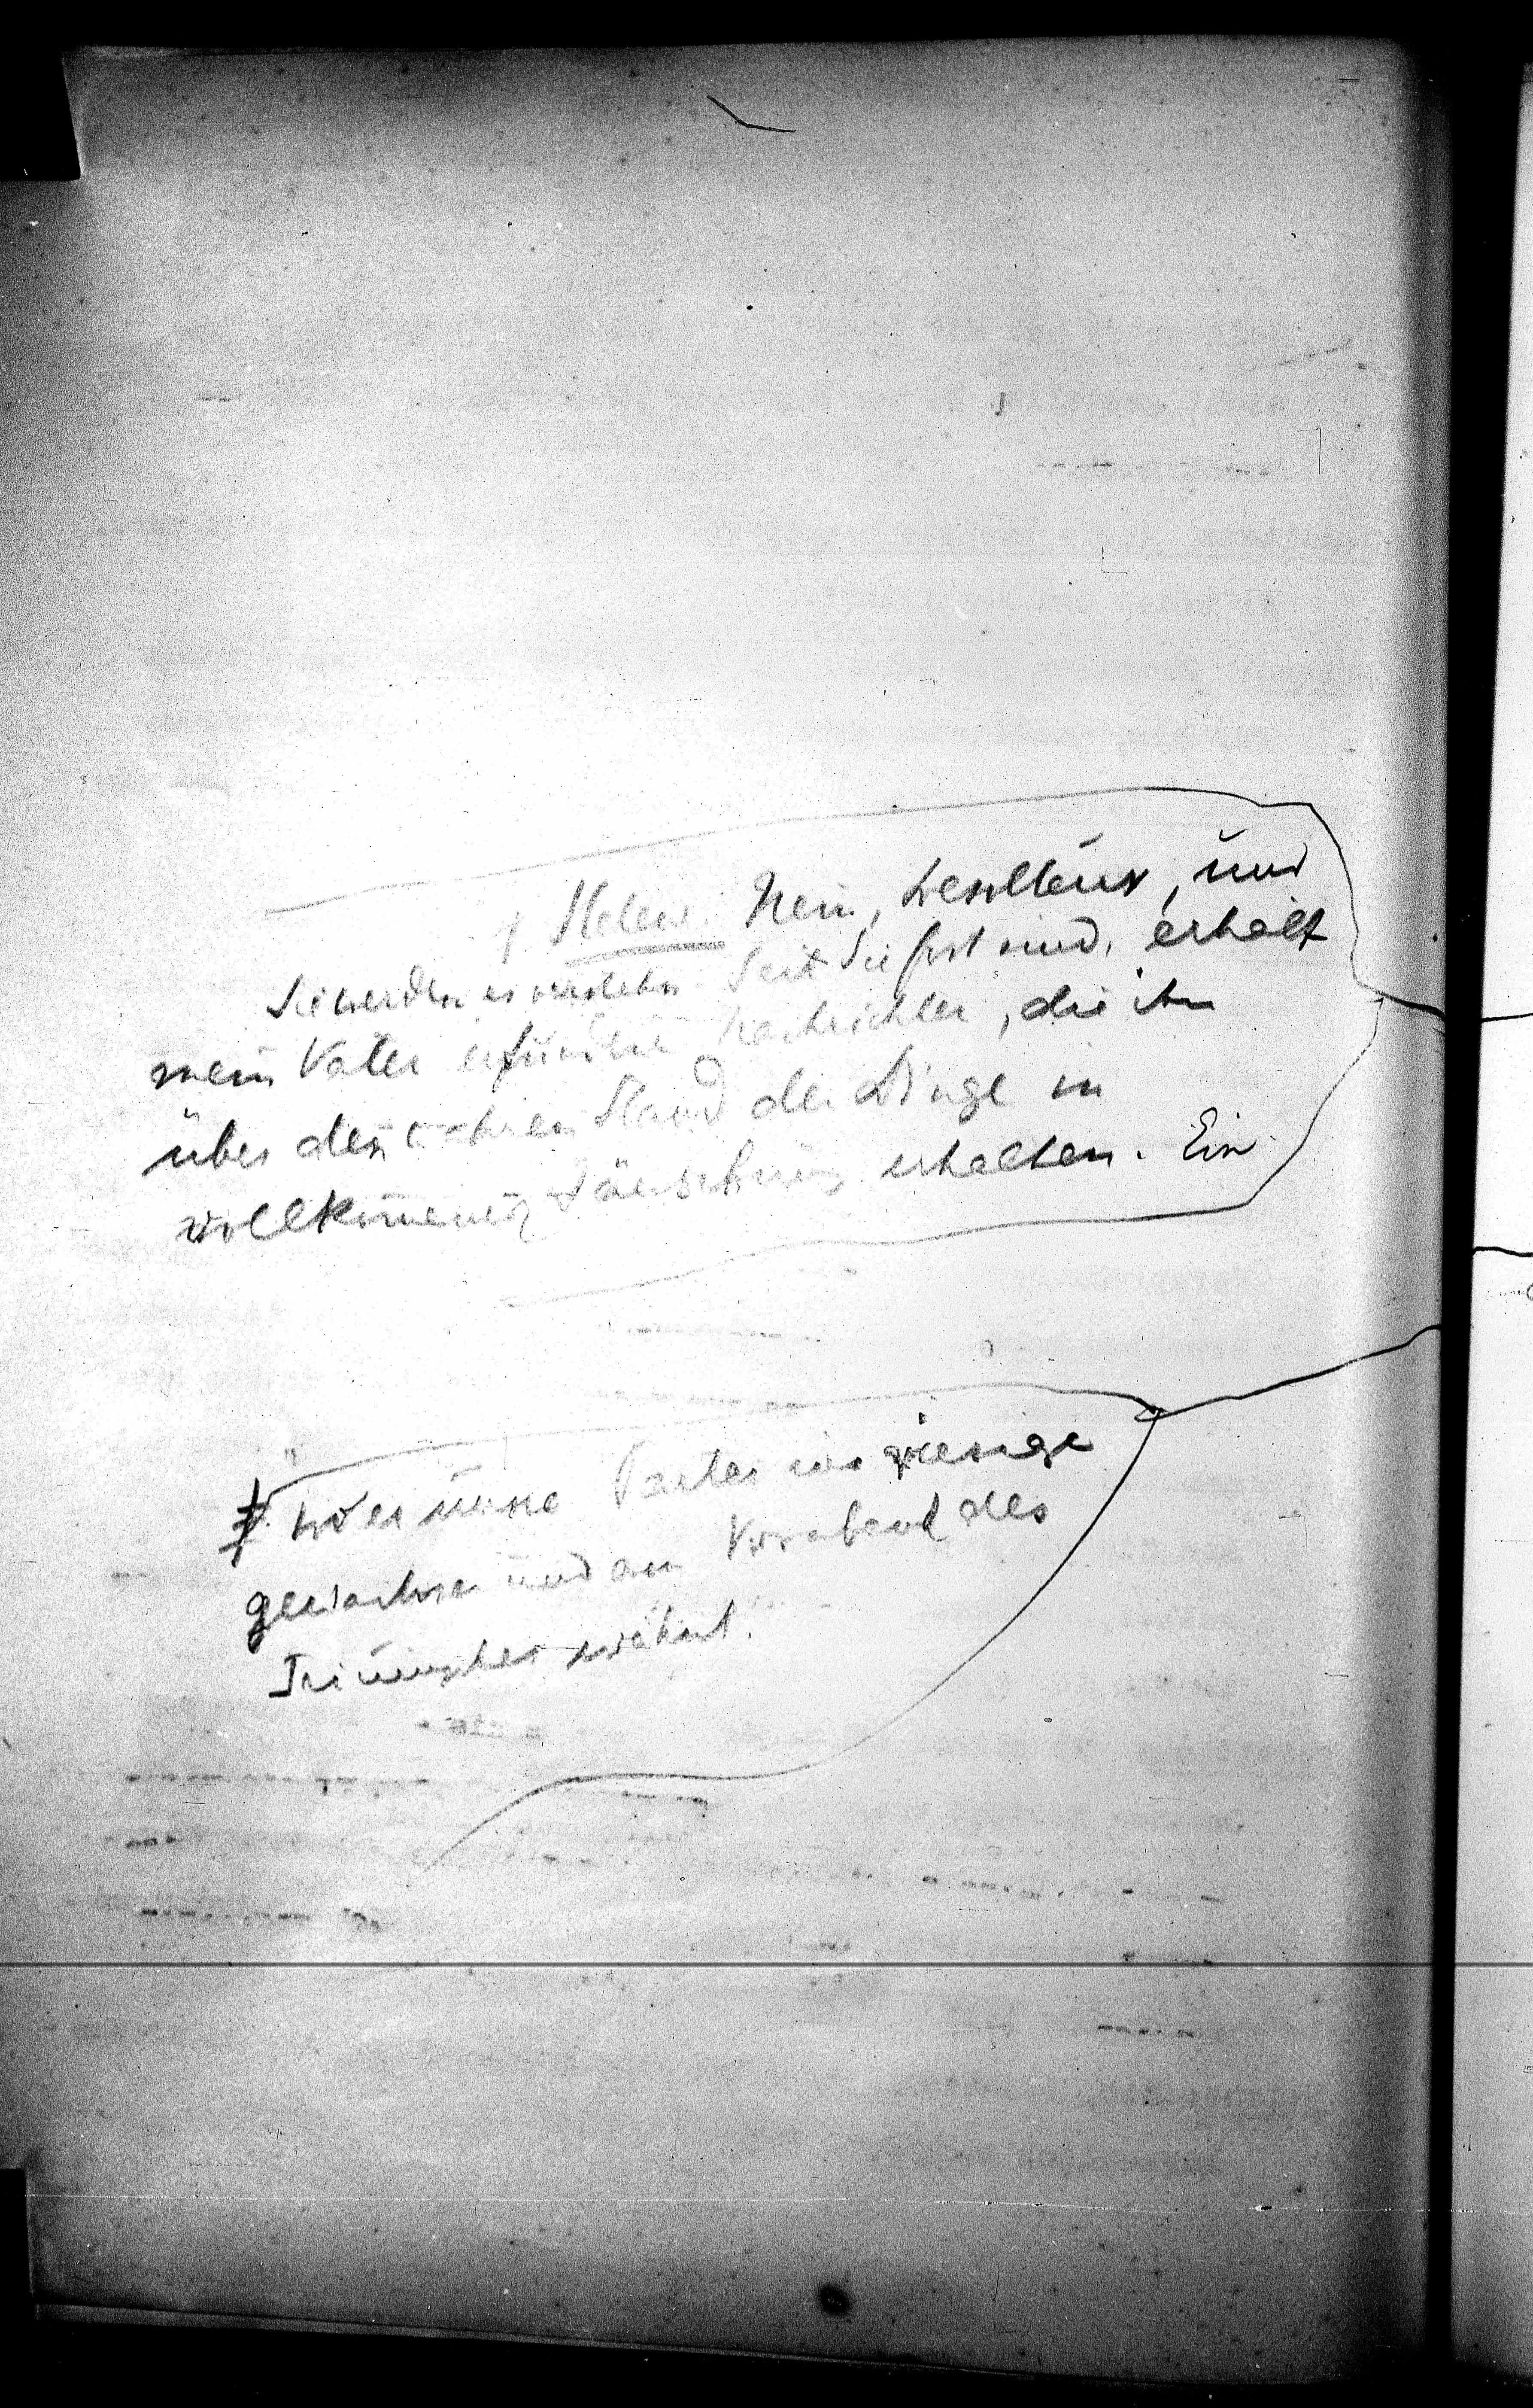 Helene Nein, Leschleus, und
Sie werden es verstehn. Seit Sie fort sind, erhält
mein Vater erfundene Nachrichten, die ihn
über den wahren Stand der Dinge in
vollkommener Täuschung erhalten. Ein
wo er unsre Partei ins riesige
gewachsen und am Vorabend des
Triumphes wähnt.